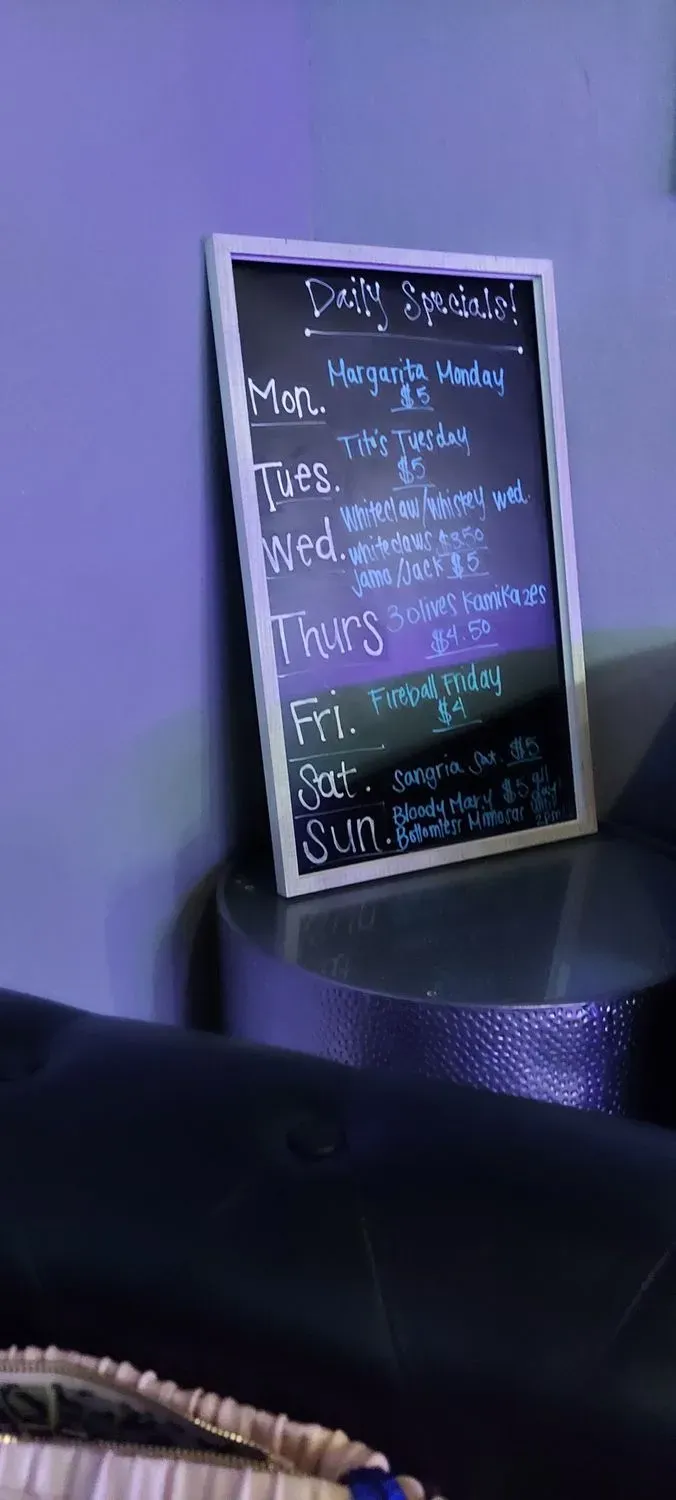 Daily Specials!
Mon. Margarita Monday
$5
Tues. Tito's Tuesday
$5
Wed. Whiteclaw/Whiskey Wed.
Whiteclaws $3.50
Jamo/Jack $5
Thurs 3 olives Kamikazes
$4.50
Fri. Fireball Friday
$4
Sat. Sangria Sat. $5
Sun. Bloody Mary $5 all day
Bottomless Mimosas until 2pm